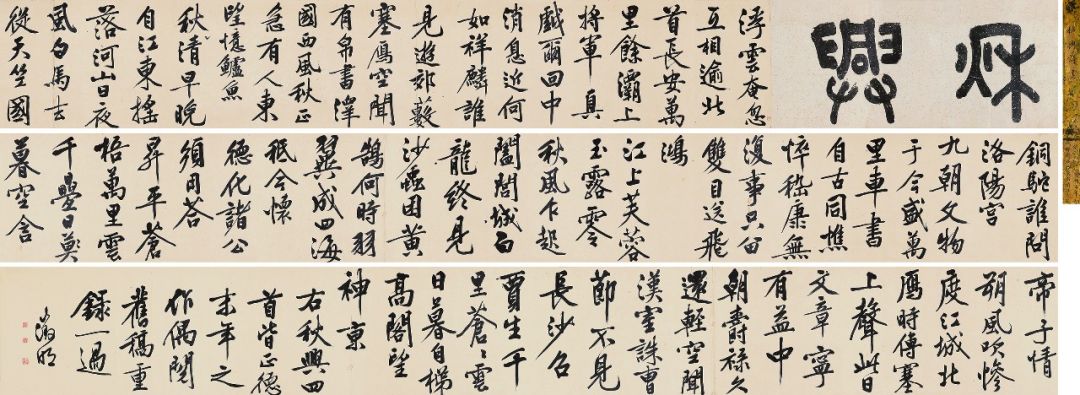 秋興
浮雲奄忽
互相逾北
首長安萬
里餘灞上
將軍真
戲爾回中
消息近何
如祥麟誰
見遊郊藪
塞鴈空聞
有帛書澤
國西風秋正
急有人東
望憶鱸魚
秋清早晚
自江東搖
落河山日夜
風白馬去
從天竺國
銅駝誰問
洛陽宮
九朝文物
于今盛萬
里車書
自古同憔
悴嵇康無
復事只留
雙目送飛
鴻
江上芙蓉
玉露零
秋風乍起
闔閭城白
龍終見
沙蟲困黃
鵠何時羽
翼成四海
秪今懷
德化諸公
須自答
昇平蒼
梧萬里雲
千疊日莫
暮空含
帝子情
朔風吹慘
度江城北
鴈時傳塞
上聲此日
文章寧
有益中
朝爵祿久
還輕空聞
漢室誅曹
節不見
長沙召
賈生千
里蒼〻雲
日暮自梯
高閣望
神京
右秋興四
首皆正德
末年之
作偶閱
舊稿重
錄一過
徵明